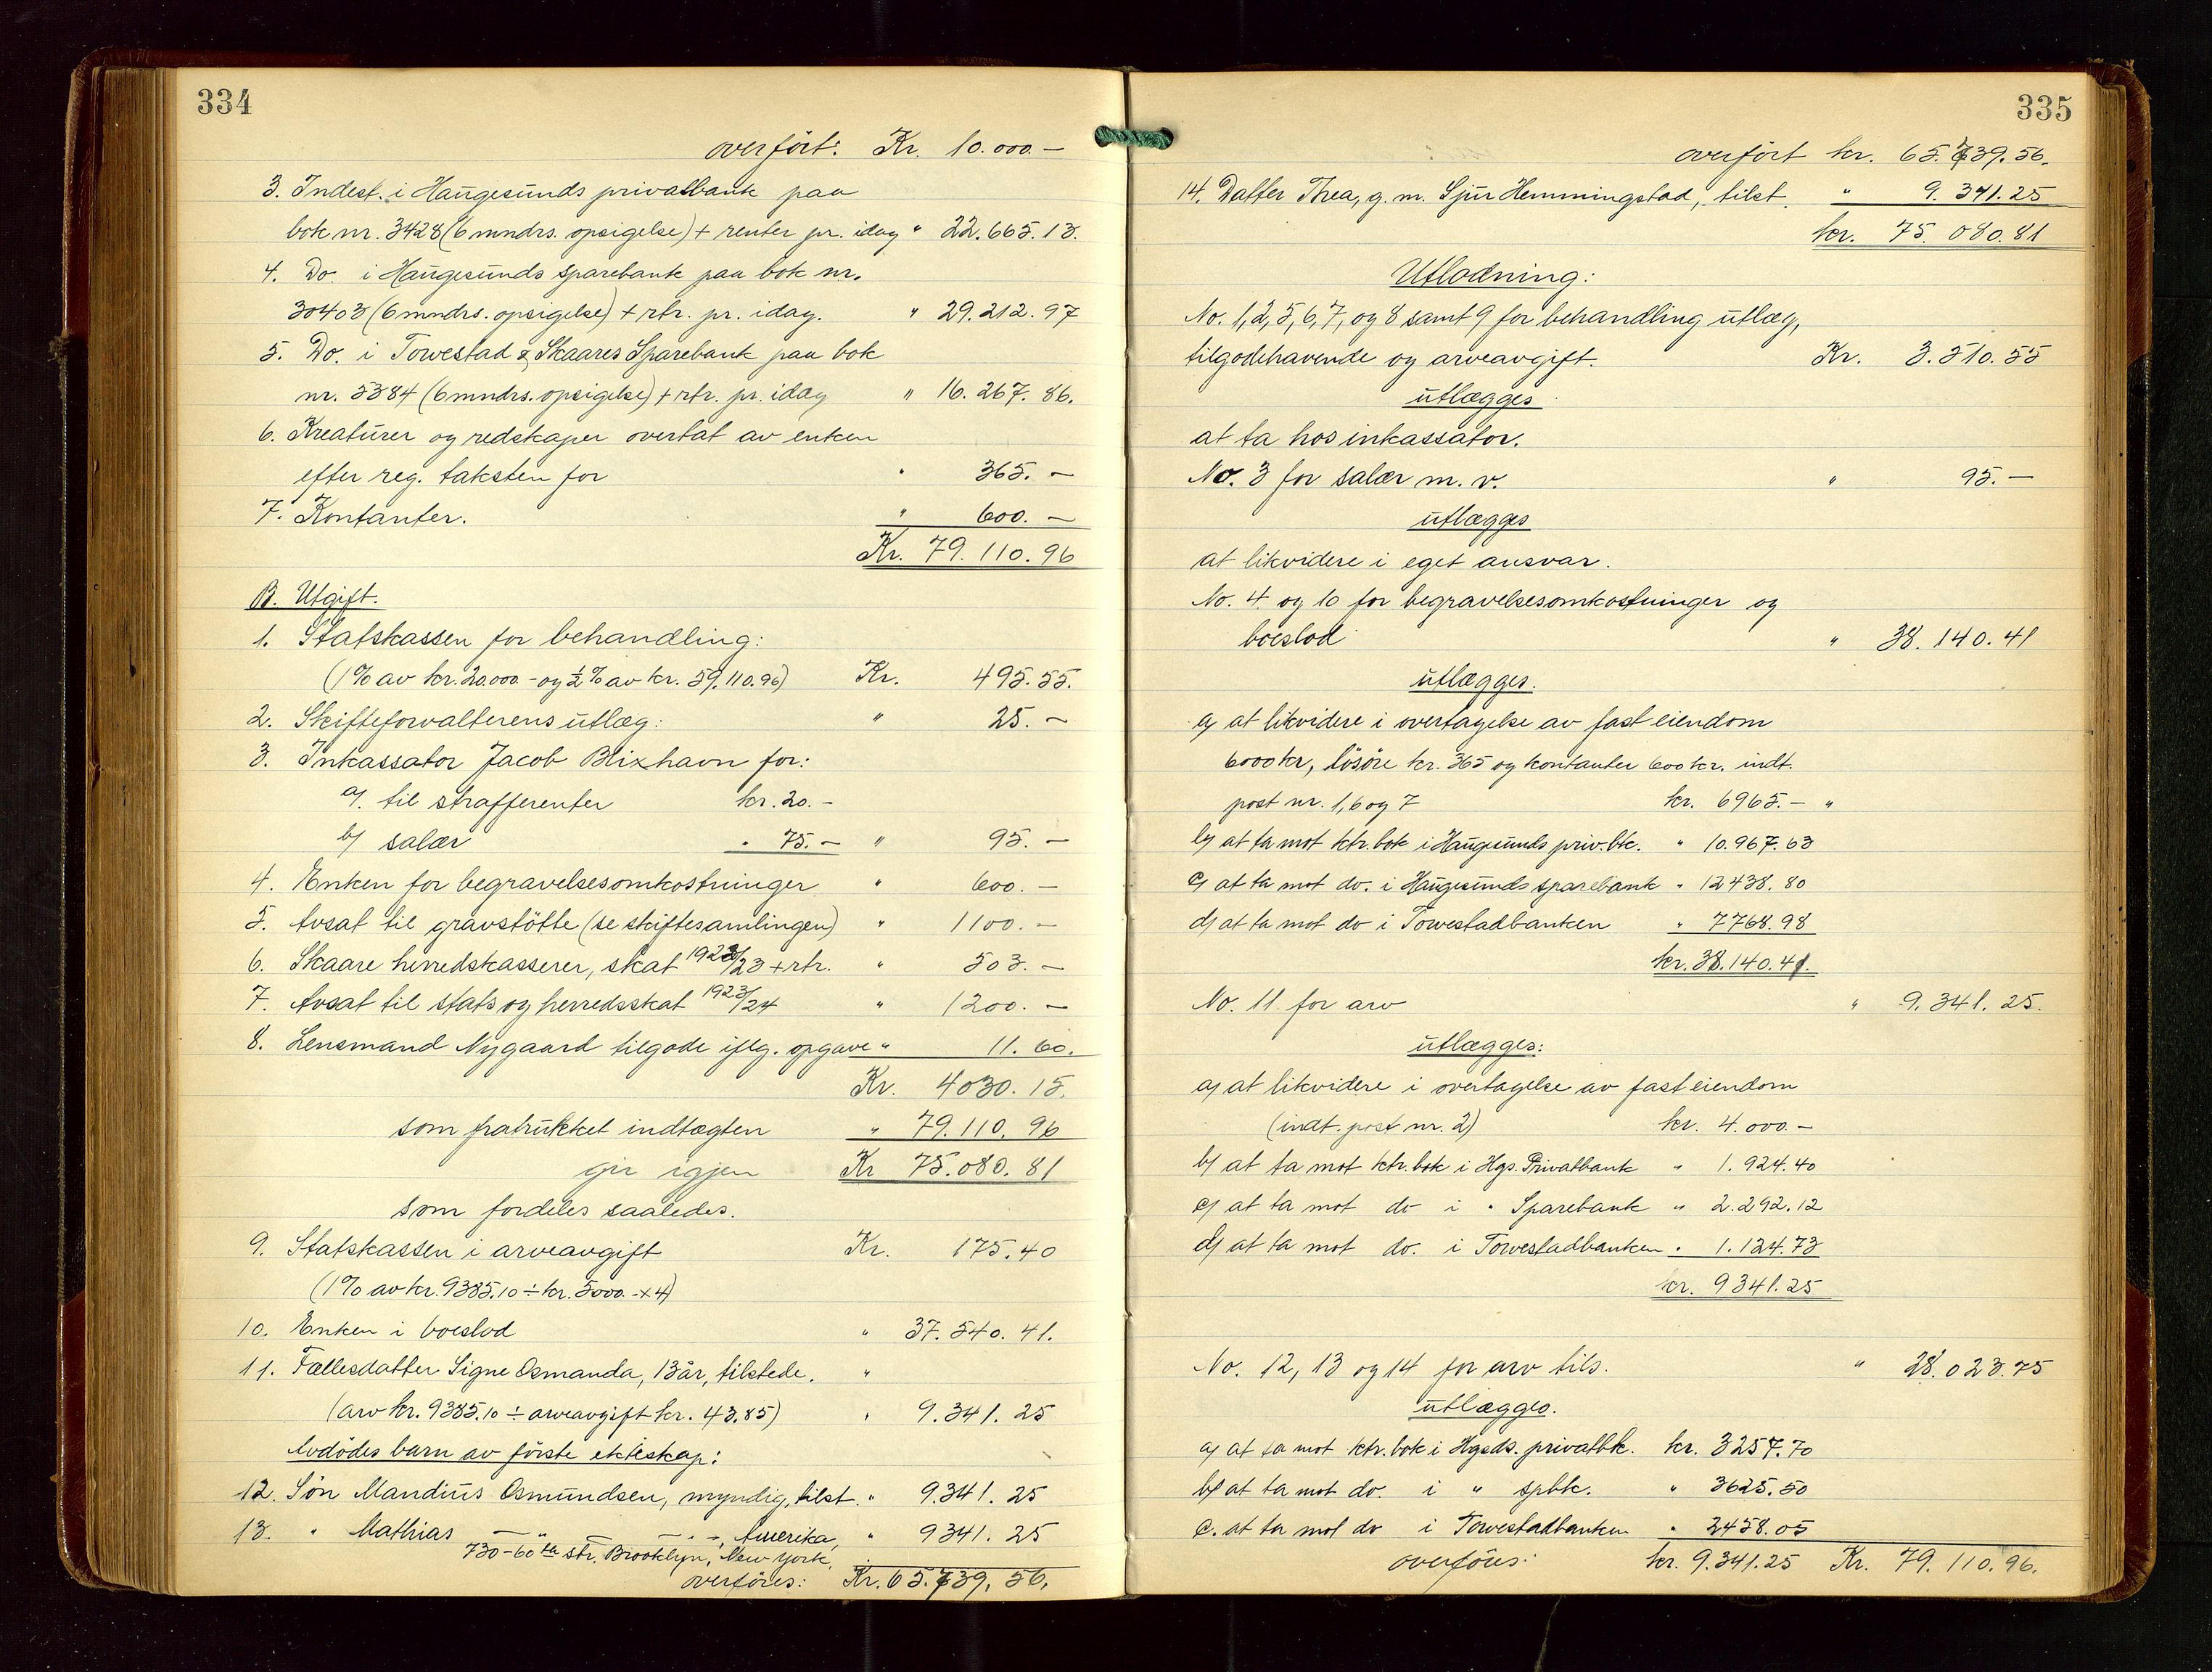 334
overført: Kr. 10.000.—
3. Indest. i Haugesunds privatbank paa
bok nr. 3428 (6 mndrs. opsigelse) + renter pr. idag " 22.665.13.
4. Do. i Haugesunds sparebank paa bok nr.
30403 (6 mndrs. opsigelse) + rtr. pr. idag. " 29.212.97
5. Do. i Torvestad & Skaares Sparebank paa bok
nr. 5384 (6 mndrs. opsigelse) + rtr. pr. idag " 16.267.86.
6. Kreaturer og redskaper overtat av enken
efter reg. taksten for " 365.—
7. Kontanter. " 600.—
Kr. 79.110.96
B. Utgift.
1. Statskassen for behandling:
(1% av kr. 20.000.- og ½% av kr. 59.110.96) Kr. 495.55.
2. Skifteforvalterens utlæg: " 25.—
3. Inkassator Jacob Blixhavn for:
a/. til strafferenter kr. 20.—
b/ salær " 75.— " 95.—
4. Enken for begravelsesomkostninger " 600.—
5. Avsat til gravstøtte (se skiftesamlingen) " 1100.—
6. Skaare herredskasserer, skat 1922/23 + rtr. " 503.—
7. Avsat til stats og herredsskat 1923/24 " 1200.—
8. Lensmand Nygaard tilgode iflg. opgave " 11.60.
Kr. 4030.15.
som fratrukket indtægten " 79.110.96
gir igjen Kr 75.080.81
som fordeles saaledes.
9. Statskassen i arveavgift Kr. 175.40
(1% av kr. 9385.10 ÷ kr. 5000.- x 4)
10. Enken i boeslod " 37.540.41.
11. Fællesdatter Signe Osmanda, 13 år, tilstede. "
(arv kr. 9385.10 ÷ arveavgift kr. 43.85) " 9.341.25
Avdødes barn av første ekteskap:
12. Søn Mandius Osmundsen, myndig, tilst. " 9.341.25
13. " Mathias — " — — " —, Amerika, " 9341.25
730-60th str. Brooklyn, New York,
overføres: Kr. 65.739.56.
335
overført kr. 65.739.56.
14. Datter Thea, g. m. Sjur Hemmingstad, tilst. " 9.341.25
kr. 75.080.81
Utlodning:
No. 1, 2, 5, 6, 7, og 8 samt 9 for behandling utlæg,
tilgodehavende og arveavgift. Kr. 3.510.55
utlægges
at ta hos inkassator.
No. 3 for salær m. v. " 95.—
utlægges
at likvidere i eget ansvar.
No. 4 og 10 for begravelsesomkostninger og
boeslod " 38.140.41
utlægges.
a/ at likvidere i overtagelse av fast eiendom
6000 kr, løsøre kr. 365 og kontanter 600 kr. indt.
post nr. 1, 6 og 7 kr. 6965.— "
b/ at ta mot ktr. bok i Haugesunds priv. bk. " 10.967.63
c/ at ta mot do. i Haugesunds sparebank " 12438.80
d/ at ta mot do i Torvestadbanken " 7768.98
kr. 38.140.41.
No. 11 for arv " 9.341.25.
utlægges:
a/ at likvidere i overtagelse av fast eiendom
(indt. post nr. 2) kr. 4.000.—
b/ at ta mot ktr. bok i Hgs. Privatbank " 1.924.40
c/ at ta mot do i " Sparebank " 2.292.12
d/ at ta mot do. i Torvestadbanken " 1.124.73
kr. 9341.25
No. 12, 13 og 14 for arv tils. " 28.023.75
utlægges.
a/ at ta mot ktr. bok i Hgsds. privatbk. kr. 3257.70
b/ at ta mot do. i " spbk. " 3625.50
c. at ta mot do i Torvestadbanken " 2458.05
overføres: kr. 9.341.25 Kr. 79.110.96.